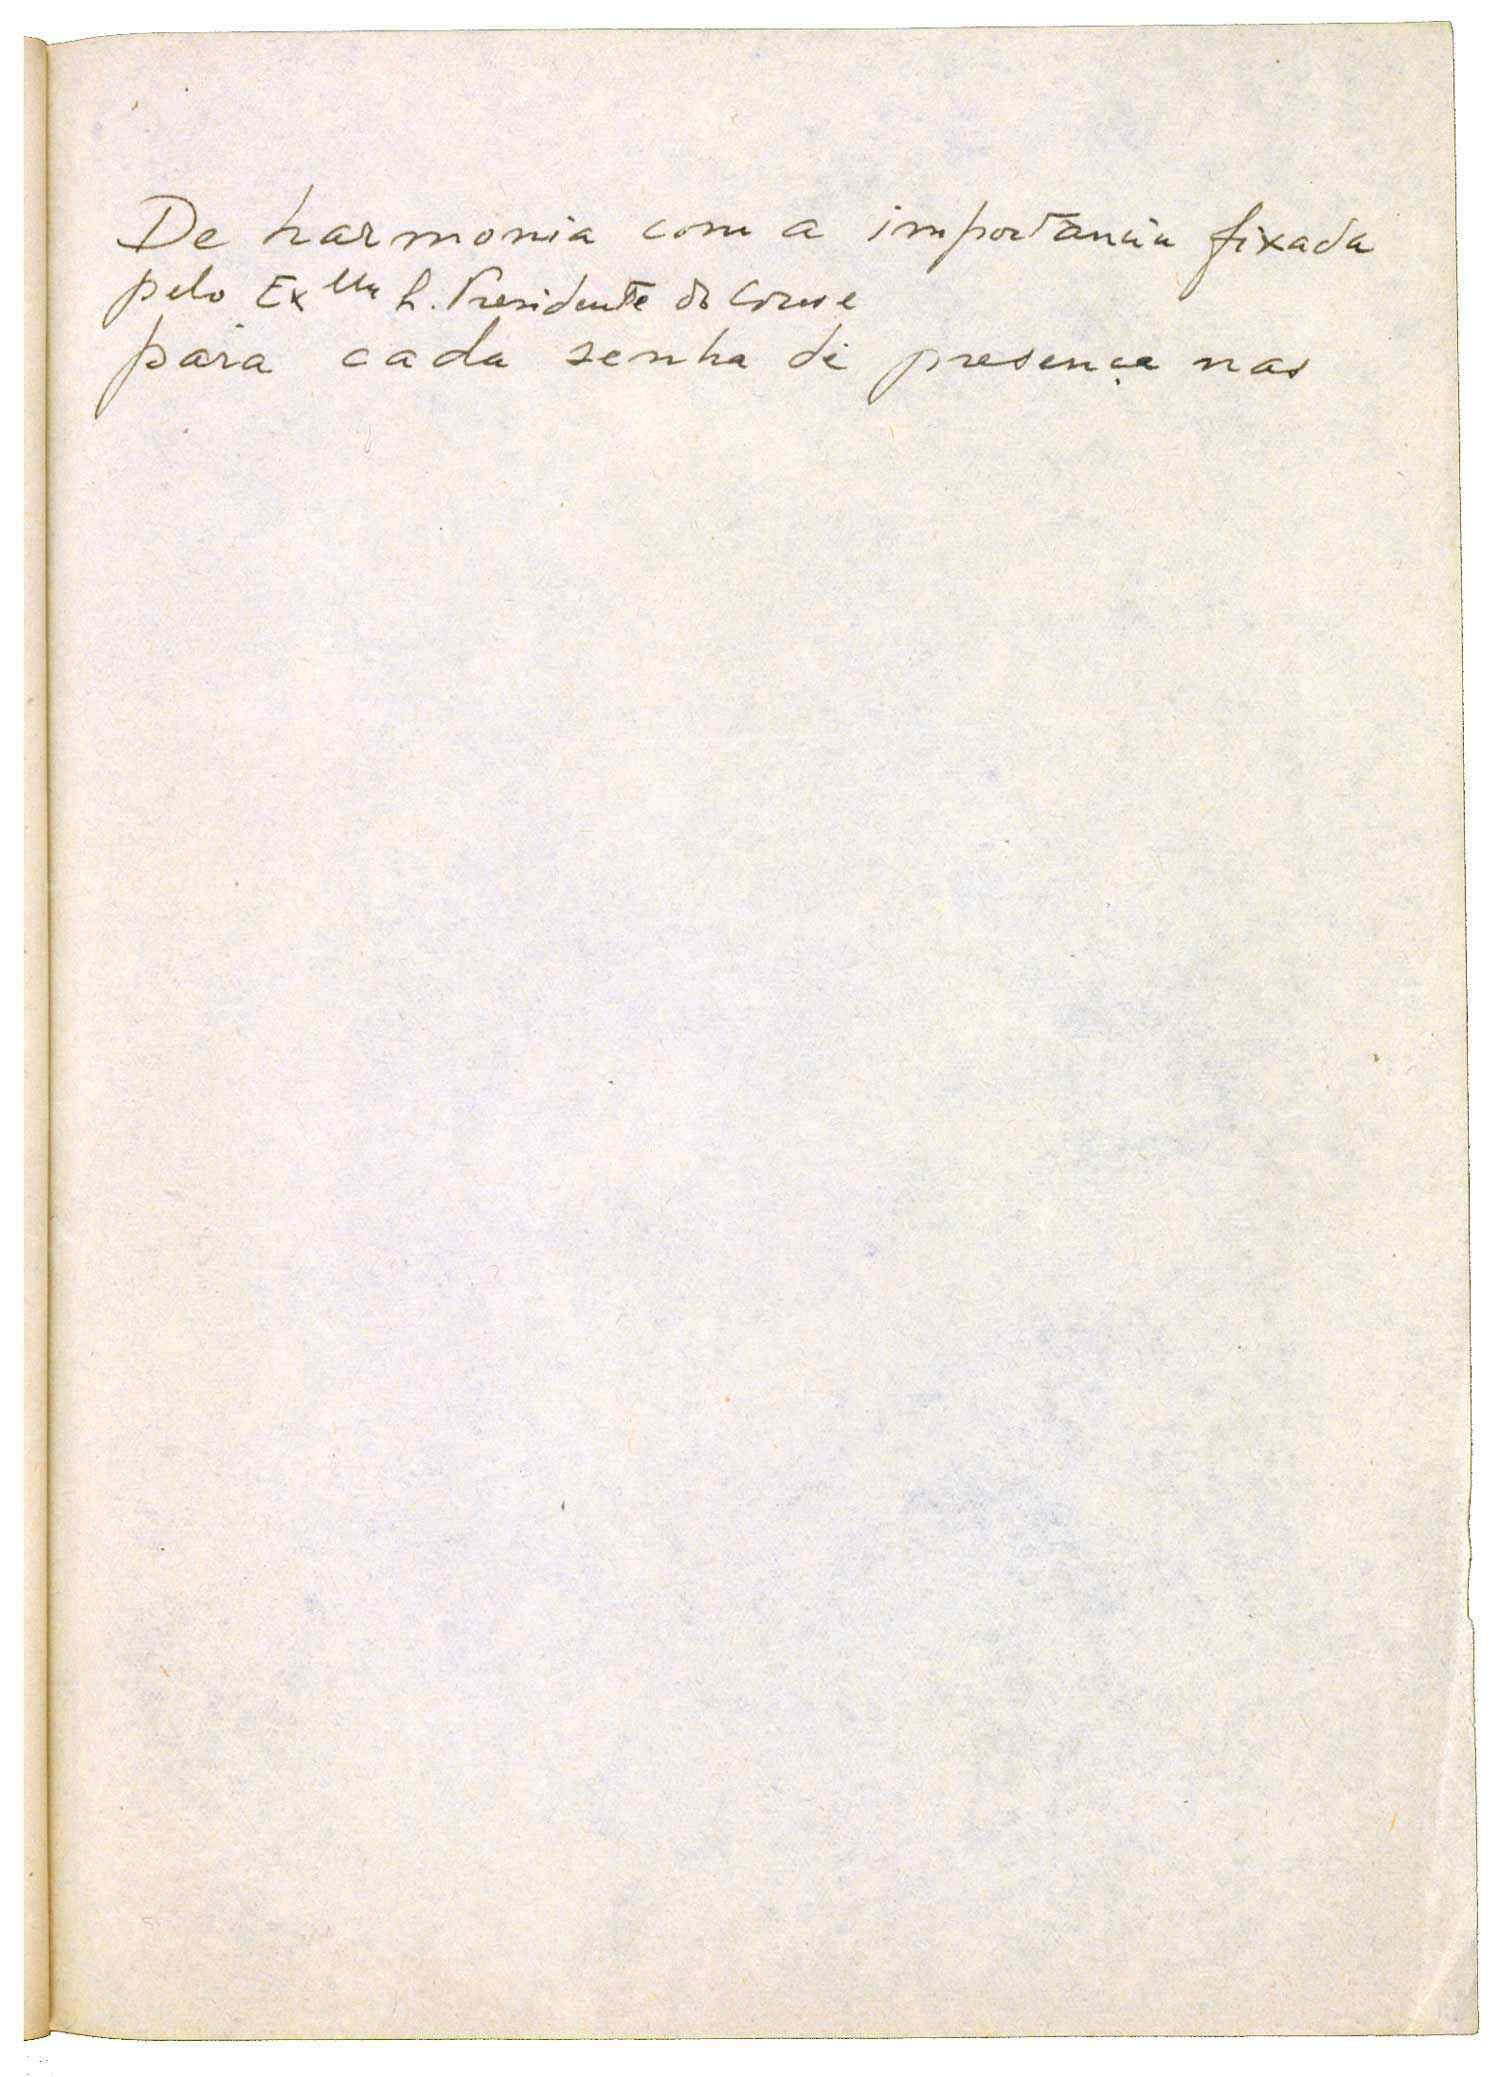 De harmonia com a importância fixada
pelo Exmo Sr. Presidente do
para cada senha de presença nas